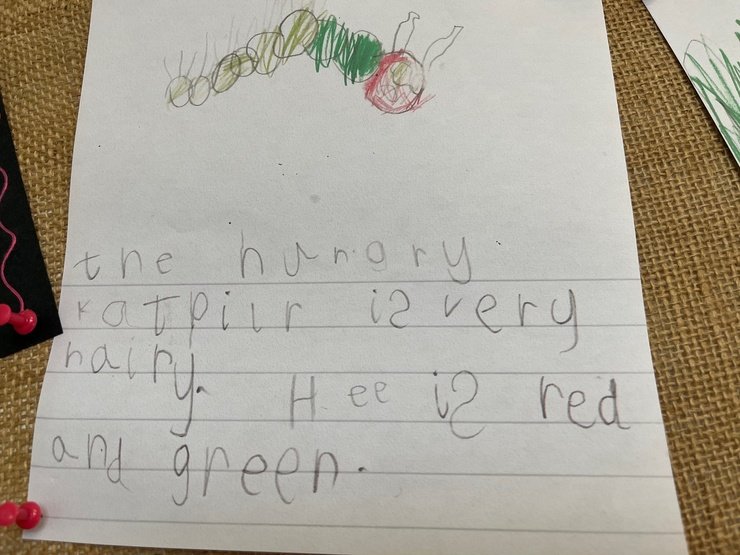 the hungry
katpilr is very
hairy. Hee is red
and green.